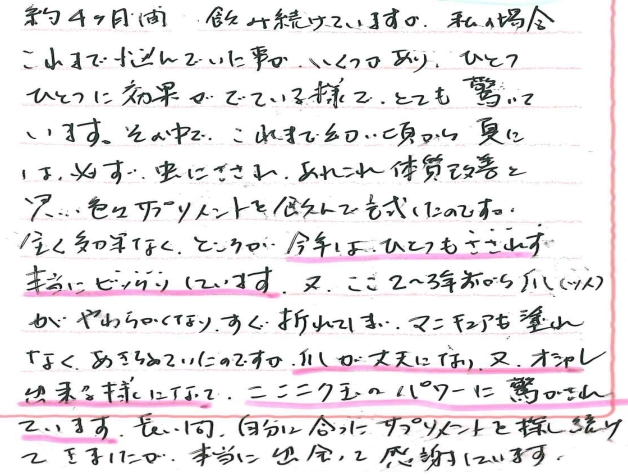 約4ヶ月間 飲み続けていますが、私の場合
これまで悩んでいた事が、いくつかあり、ひとつ
ひとつに効果がでている様で、とても驚いて
います。その中で、これまで幼い頃から夏に
は、必ず、虫にさされ、あれこれ体質改善と
思い色々サプリメントを飲んで試したのですが、
全く効果なく、ところが今年は、ひとつもさされず
本当にビックリしています。又、ここ2〜3年前から爪(ツメ)
がやわらかくなり、すぐ折れてしまい、マニキュアも塗れ
なく、あきらめていたのですが、爪が丈夫になり、又、オシャレ
出来る様になって、ニンニク玉のパワーに驚かされ
ています。長い間、自分に合ったサプリメントを探し続け
てきましたが、本当に出会えて感謝しています。